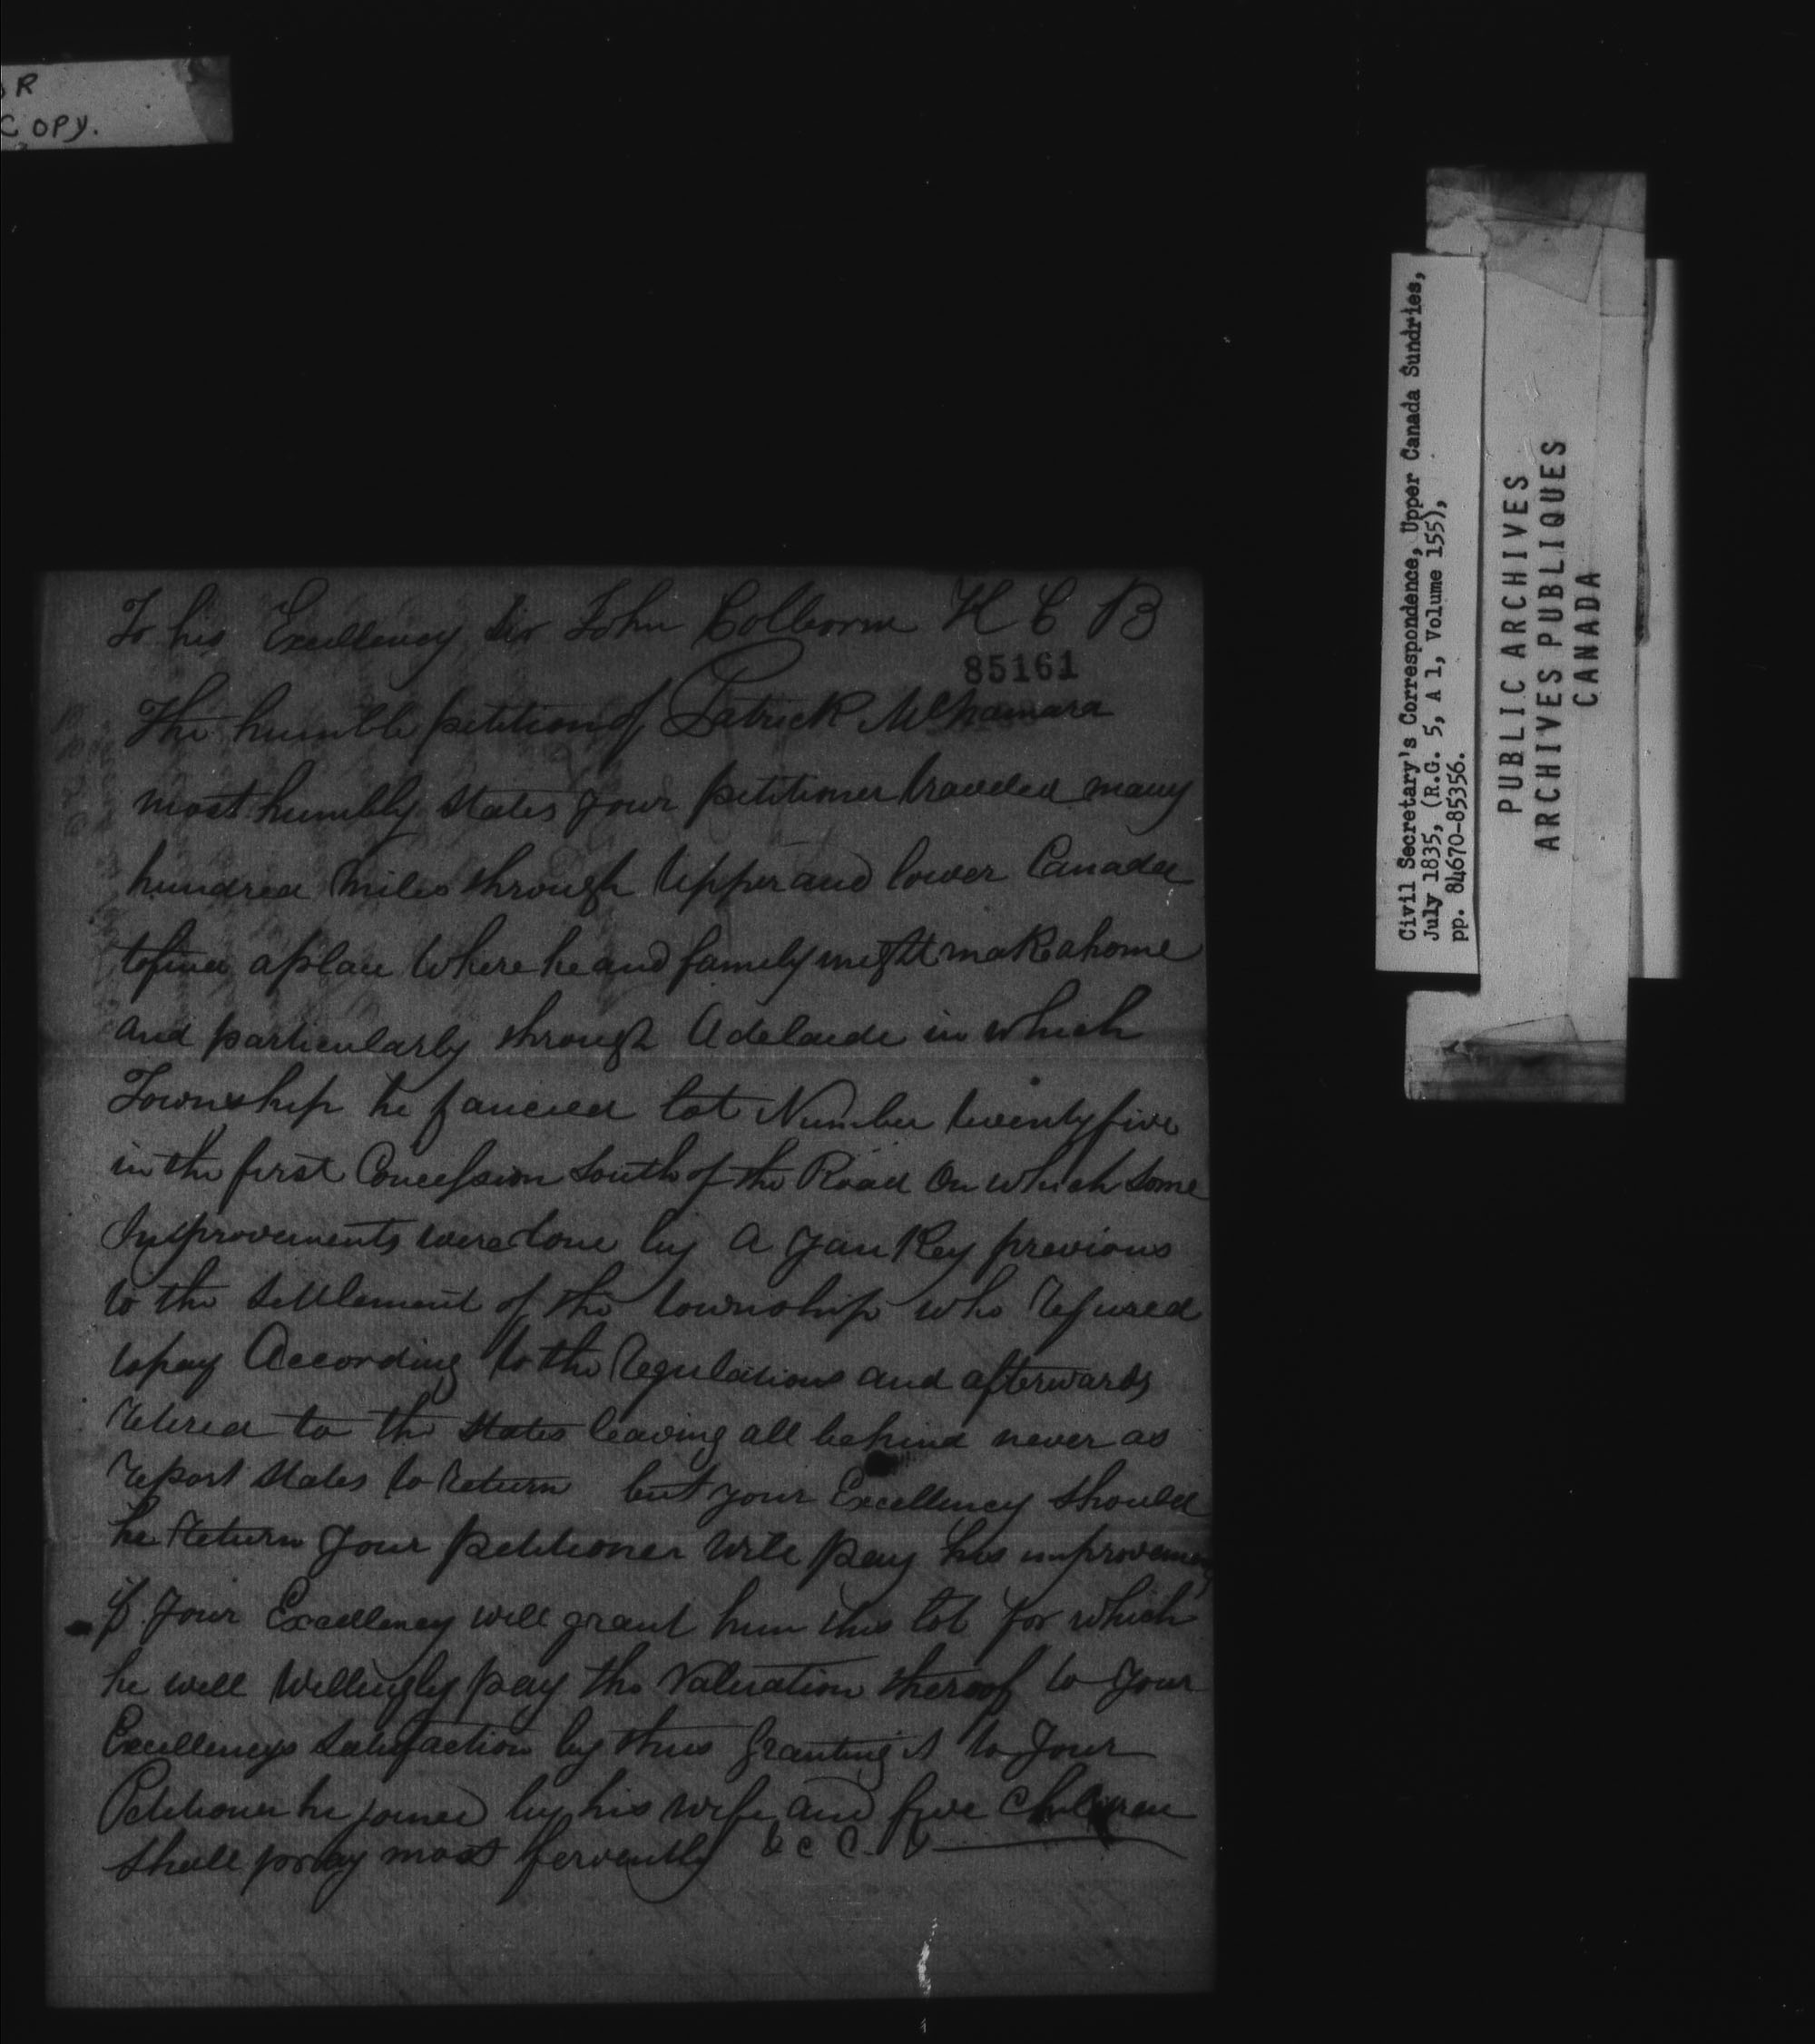 R
COPY.
To his Excellency Sir John Colborne K C B
85161
The humble petition of Patrick McNamara
most humbly States your petitioner traveled many
hundred Miles through Upper and lower Canada
to find a place Where he and family might make a home
and particularly through Adelaide in which
Township he fancied lot Number twenty five
in the first Concession South of the Road On which Some
Improvements were done by a Yankey previous
to the Settlement of the township who Refused
to pay According to the Regulations and afterwards
Retired to the States leaving all behind never as
Report States to Return but your Excellency Should
he Return Your petitioner Will pay his improvements
if Your Excellency will grant him this lot for which
he will Willingly pay the Valuation thereof to Your
Excellencys Satisfaction by thus Granting it to Your
Petitioner he joined by his Wife and five Children
Shall pray most fervently &c &c
Civil Secretary's Correspondence, Upper Canada Sundries,
July 1835, (R.G. 5, A 1, Volume 155),
pp. 84670-85356.
PUBLIC ARCHIVES
ARCHIVES PUBLIQUES
CANADA